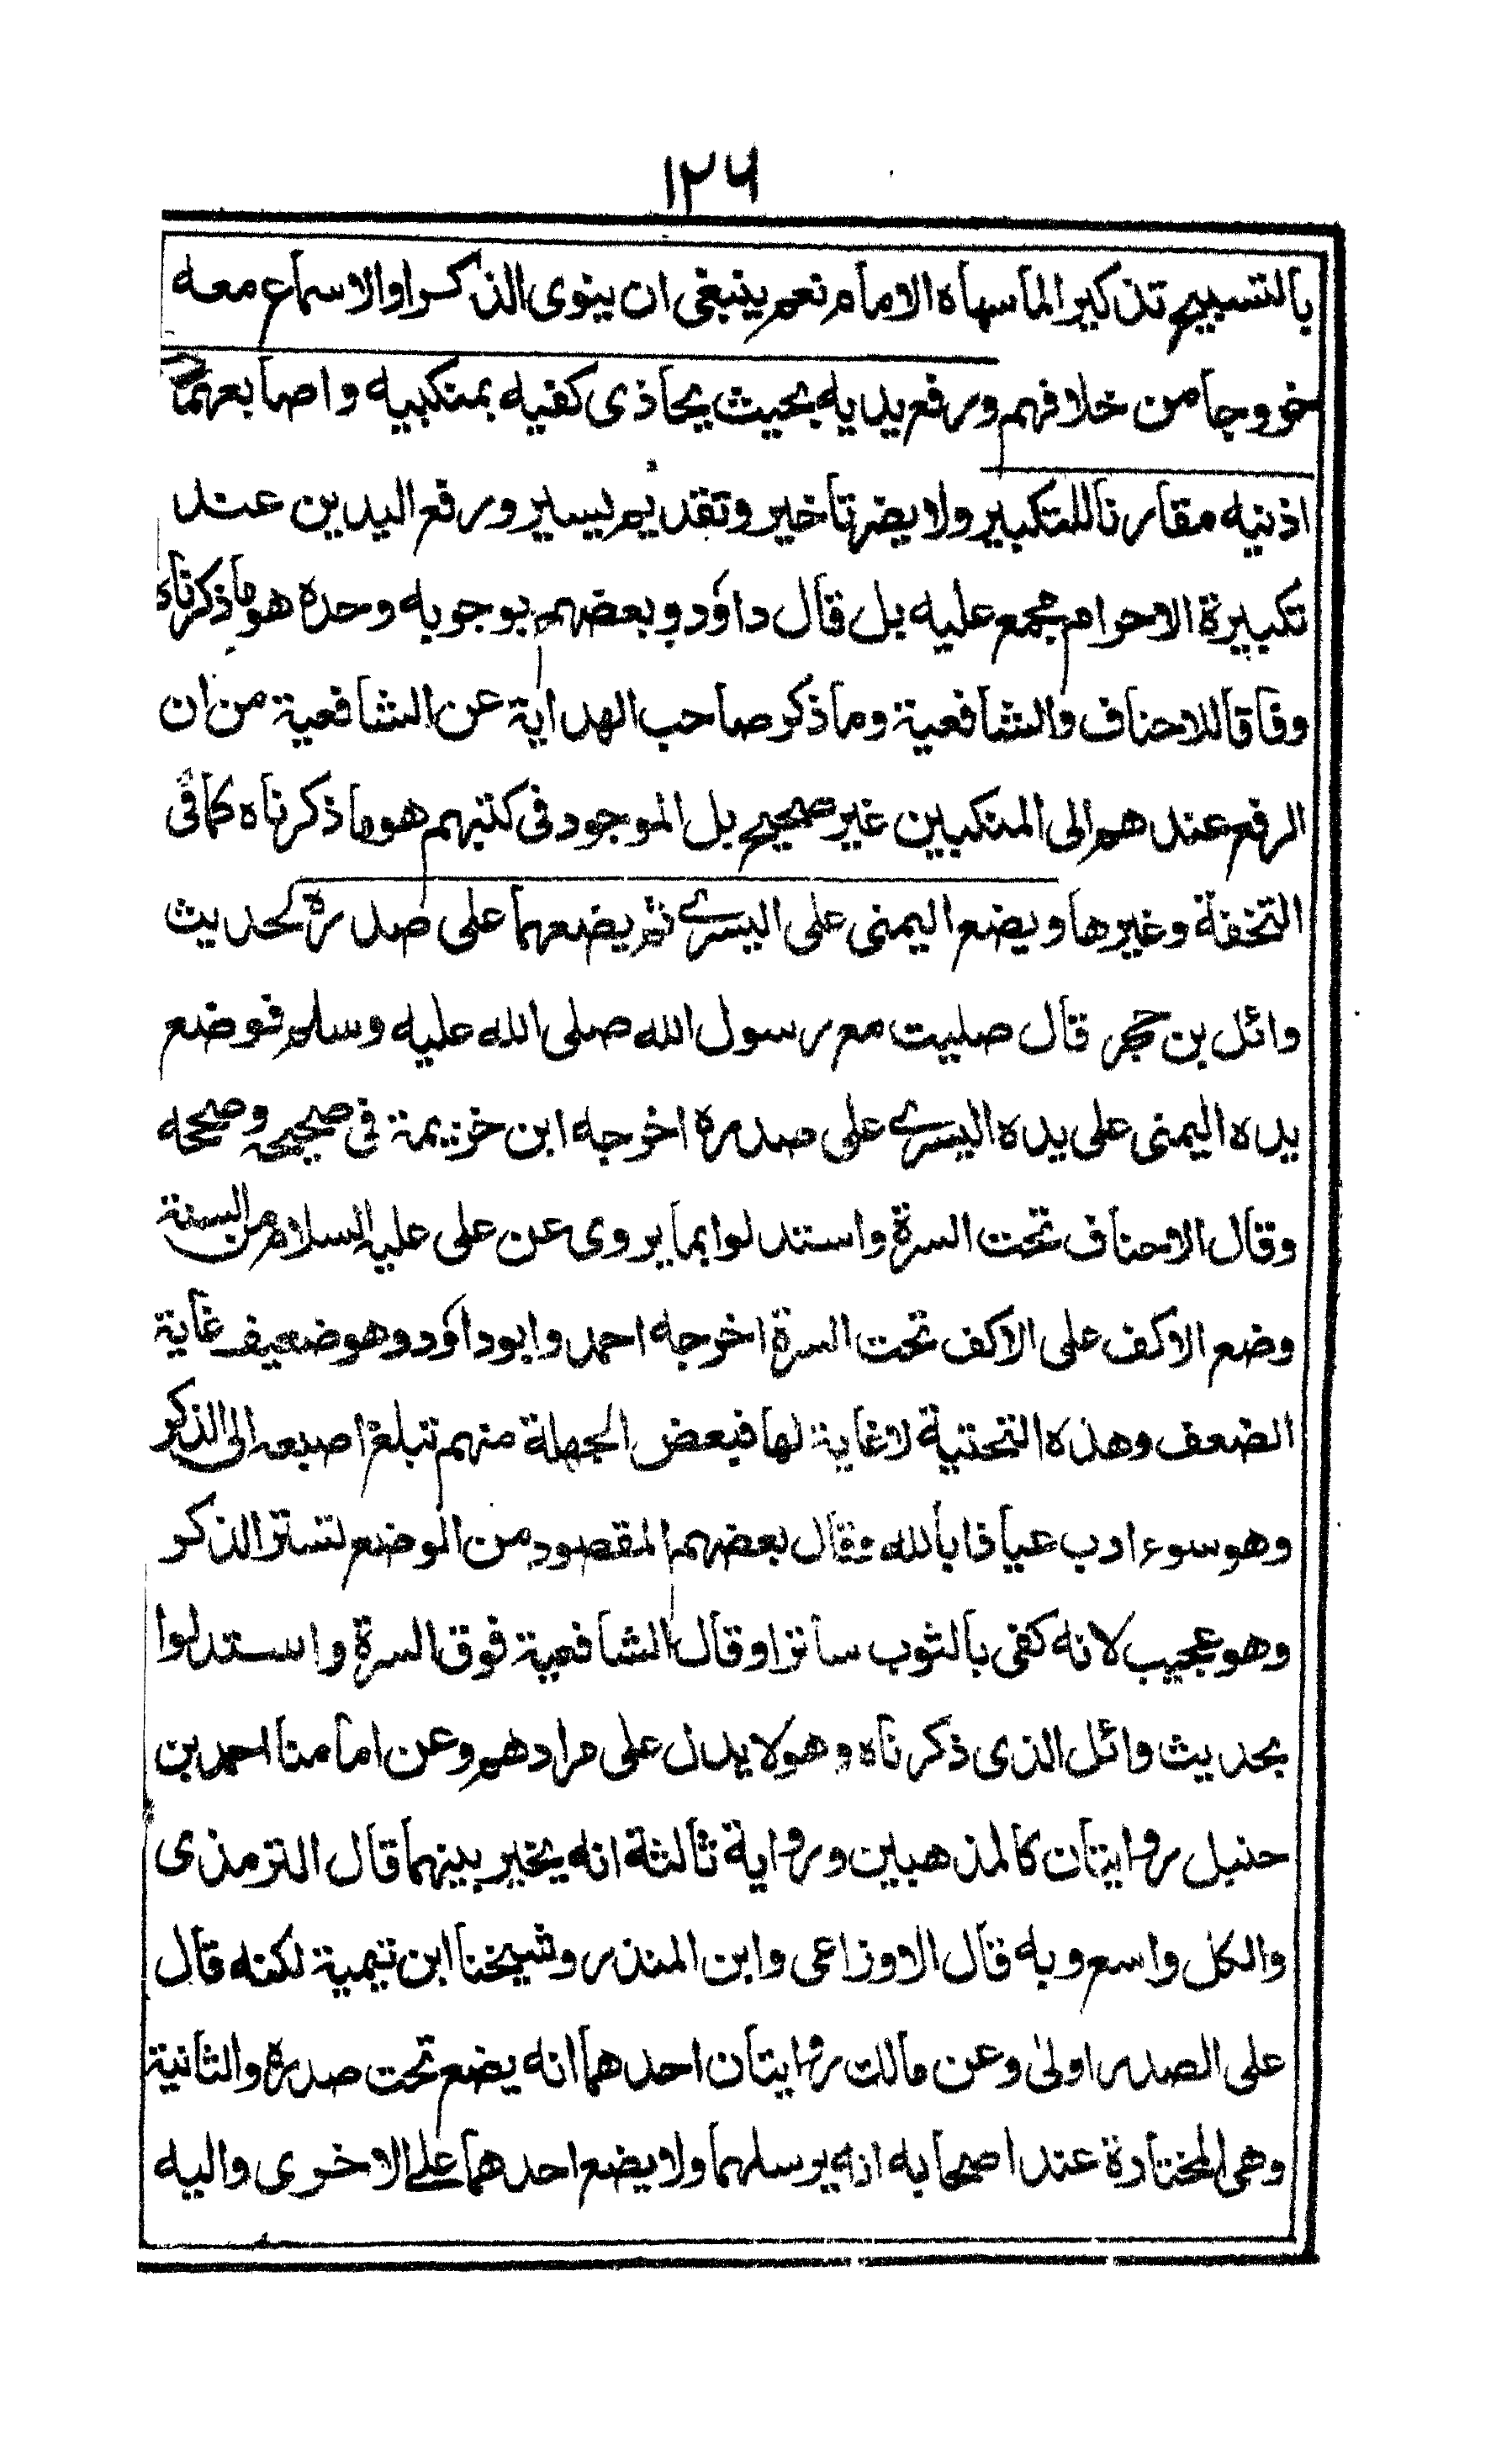 ١٢٦
بالتسبيح تذكيرا لما سهاه الامام نعم ينبغى ان ينوى الذكر او الاسماع معه
خروجا من خلافهم ورفع يديه بحيث يحاذى كفيه بمنكبيه واصابعهما
اذنيه مقارنا للتكبير ولا يضر تاخير وتقديم يسير ورفع اليدين عند
تكبيرة الاحرام مجمع عليه بل قال داؤد وبعضهم بوجوبه وحده هو ما ذكرناه
وفاقا للاحناف والشافعية وما ذكر صاحب الهداية عن الشافعية من ان
الرفع عندهم الى المنكبين غير صحيح بل الموجود فى كتبهم هو ما ذكرناه كما فى
التحفة وغيرها ويضع اليمنى على اليسرے ثم يضعهما على صدره لحديث
وائل بن حجر قال صليت مع رسول الله صلى الله عليه وسلم فوضع
يده اليمنى على يده اليسرے على صدره اخرجه ابن خزيمة فى صحيحه وصححه
وقال الاحناف تحت السرة واستدلوا بما يروى عن على عليه السلام من السنة
وضع الاكف على الاكف تحت السرة اخرجه احمد وابوداؤد وهو ضعيف غاية
الضعف وهذه التحتية لا غاية لها فبعض الجهلة منهم تبلغ اصبعه الى الذكر
وهو سوء ادب عياذا بالله وقال بعضهم المقصود من الوضع لتستر الذكر
وهو عجيب لانه كفى بالثوب ساترا وقال الشافعية فوق السرة واستدلوا
بحديث وائل الذى ذكرناه وهو لا يدل على مرادهم وعن امامنا احمد بن
حنبل روايتان كالمذهبين ورواية ثالثة انه يخير بينهما قال الترمذى
والكل واسع وبه قال الاوزاعى وابن المنذر وشيخنا ابن تيمية لكنه قال
على الصدر اولىٰ وعن مالك روايتان احدهما انه يضع تحت صدره والثانية
وهى المختارة عند اصحابه انه يرسلهما ولا يضع احدهما علے الاخرى واليه